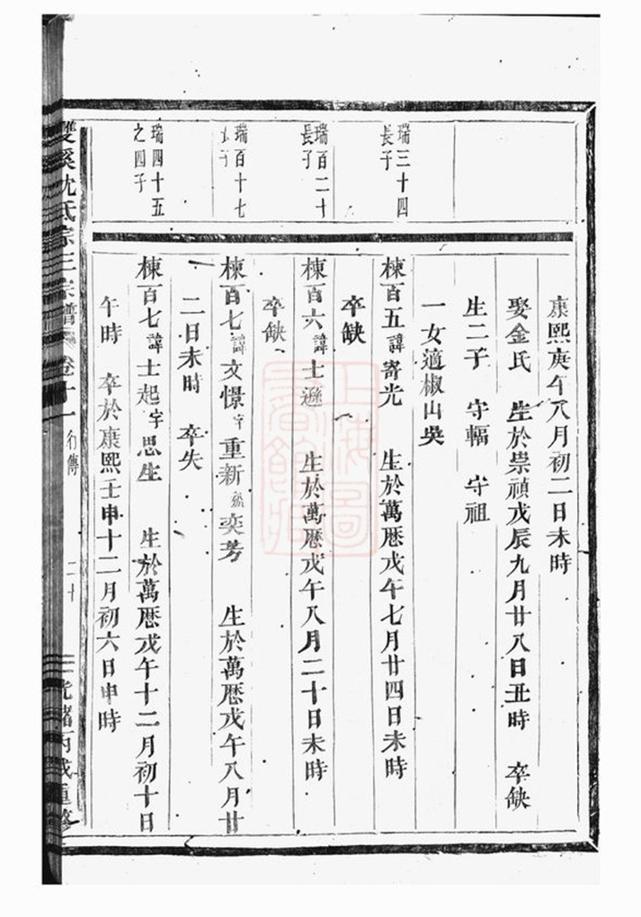 康熙庚午八月初二日未時
娶金氏 生於崇禎戊辰九月廿八日丑時 卒缺
生二子 守輻 守祖
一女適椒山吳
瑞三十四長子
棟百五諱寄光 生於萬曆戊午七月廿四日未時
卒缺
瑞百二十長子
棟百六諱士遜 生於萬曆戊午八月二十日未時
卒缺
瑞百十七
棟百七諱文憬字重新 奕芳 生於萬曆戊午八月廿
二日未時 卒失
瑞四十五之四子
棟百七諱士起字思生 生於萬曆戊午十二月初十日
午時 卒於康熙壬申十二月初六日申時
雙溪沈氏宗三宗譜 卷十一 行傳 二十 光緒丙戌重修
上海圖書館藏